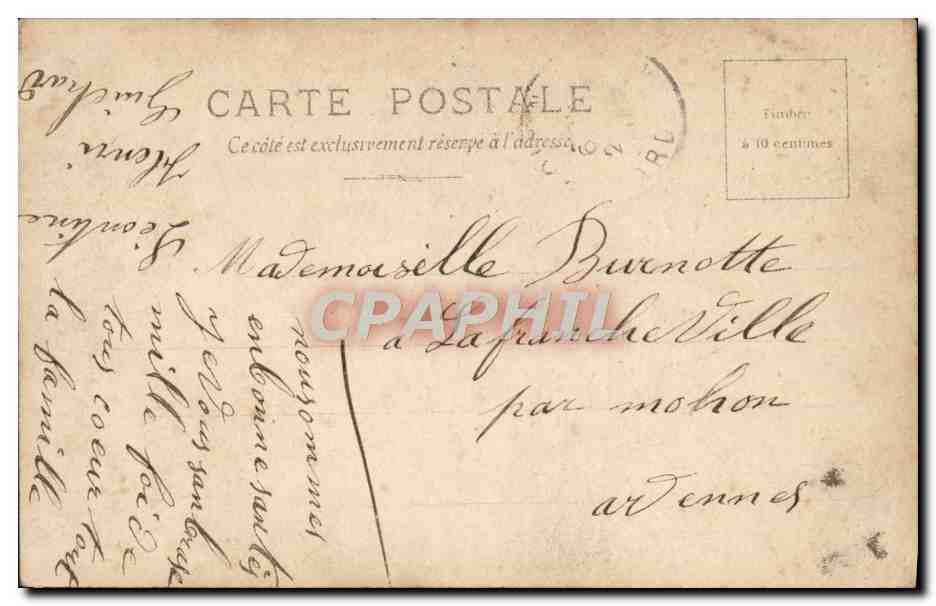 CARTE POSTALE
Ce côté est exclusivement réservé à l'adresse
Timbre
à 10 centimes
Mademoiselle Burnotte
à Lafrancheville
par mohon
ardennes
nous sommes
en bonne santé
je vous embrase
mille fois de
tous coeur tout
la famille
Léontine
Henri
Guichard
CPAPHIL